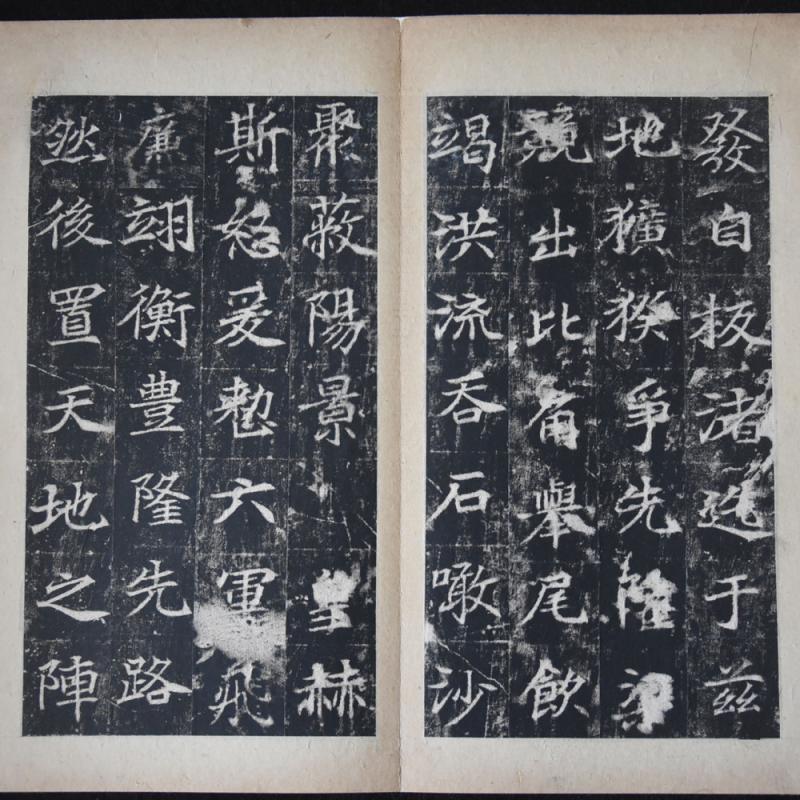 發自板渚迄于茲
地獷猴爭先陸梁
競出比角舉尾飲
竭洪流吞石噉沙
聚蔽陽景 皇赫
斯怒爰整六軍飛
廉翊衡豊隆先路
然後置天地之陣